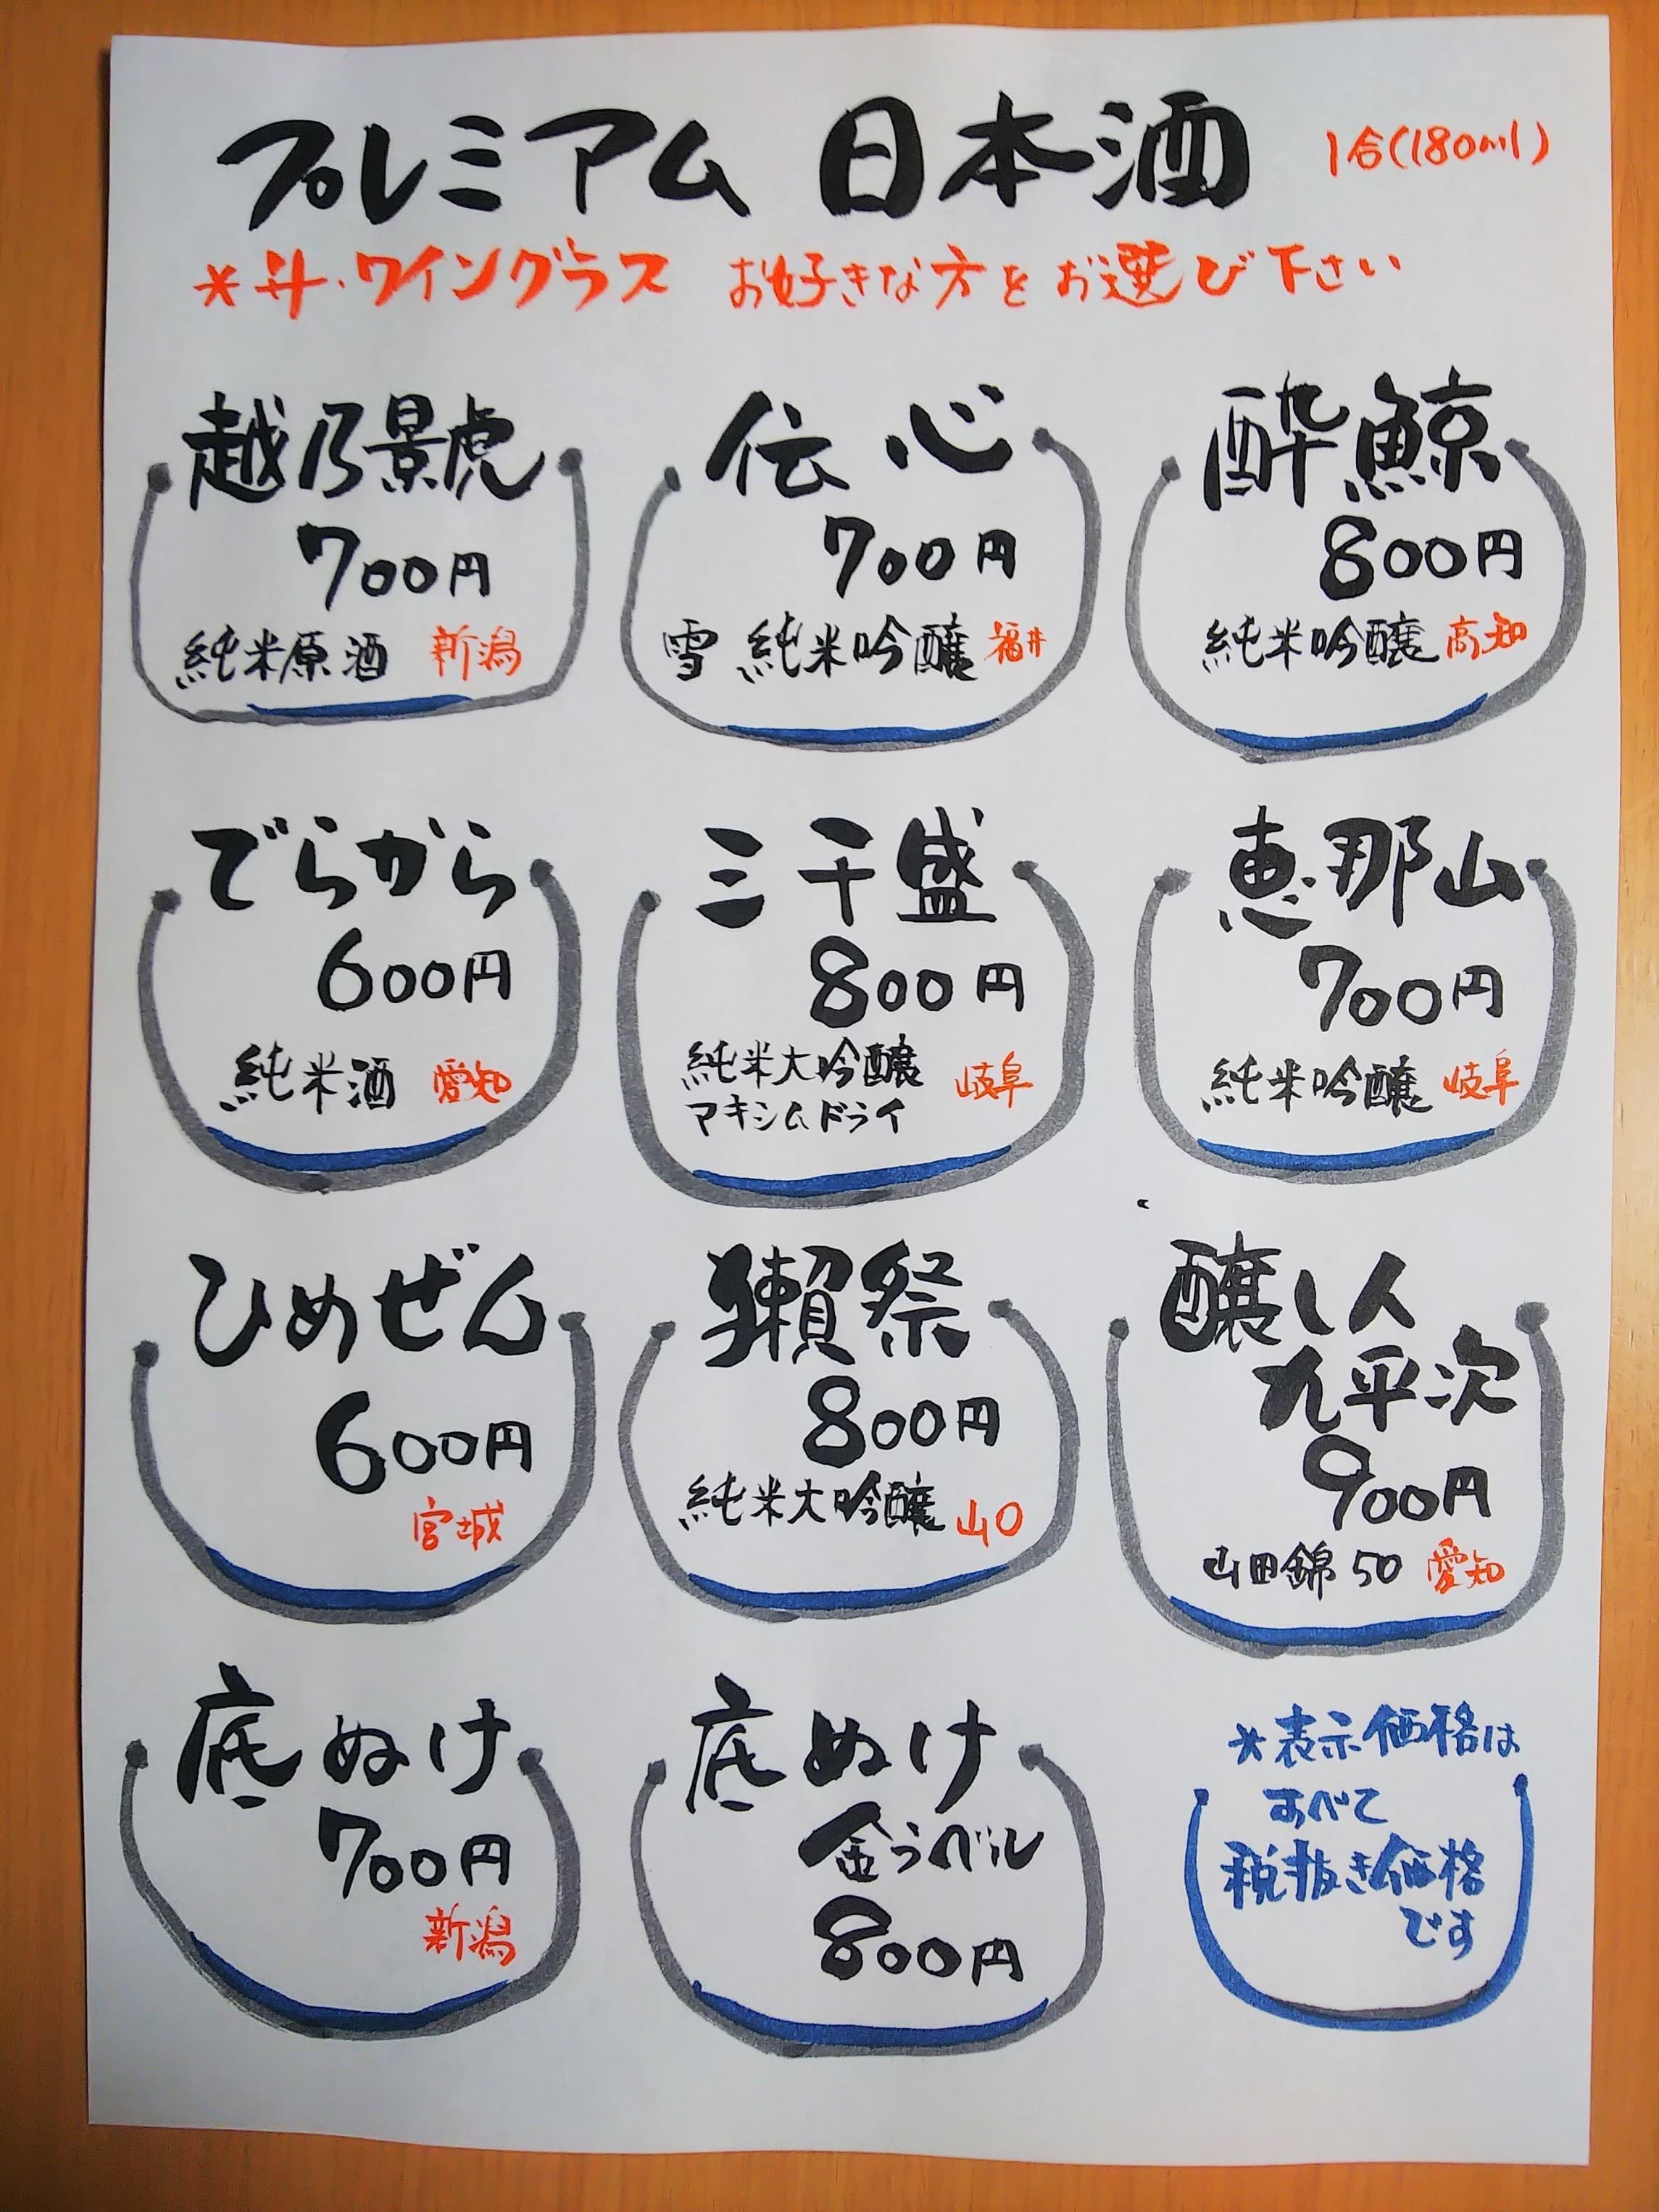 プレミアム 日本酒 1合(180ml)
*升・ワイングラス お好きな方をお選び下さい
越乃景虎
700円
純米原酒 新潟
伝心
700円
雪 純米吟醸 福井
酔鯨
800円
純米吟醸 高知
でらから
600円
純米酒 愛知
三千盛
800円
純米大吟醸
マキシムドライ
岐阜
恵那山
700円
純米吟醸 岐阜
ひめぜん
600円
宮城
獺祭
800円
純米大吟醸 山口
醸し人
九平次
900円
山田錦 50 愛知
底ぬけ
700円
新潟
底ぬけ
金ラベル
800円
*表示価格は
すべて
税抜き価格
です